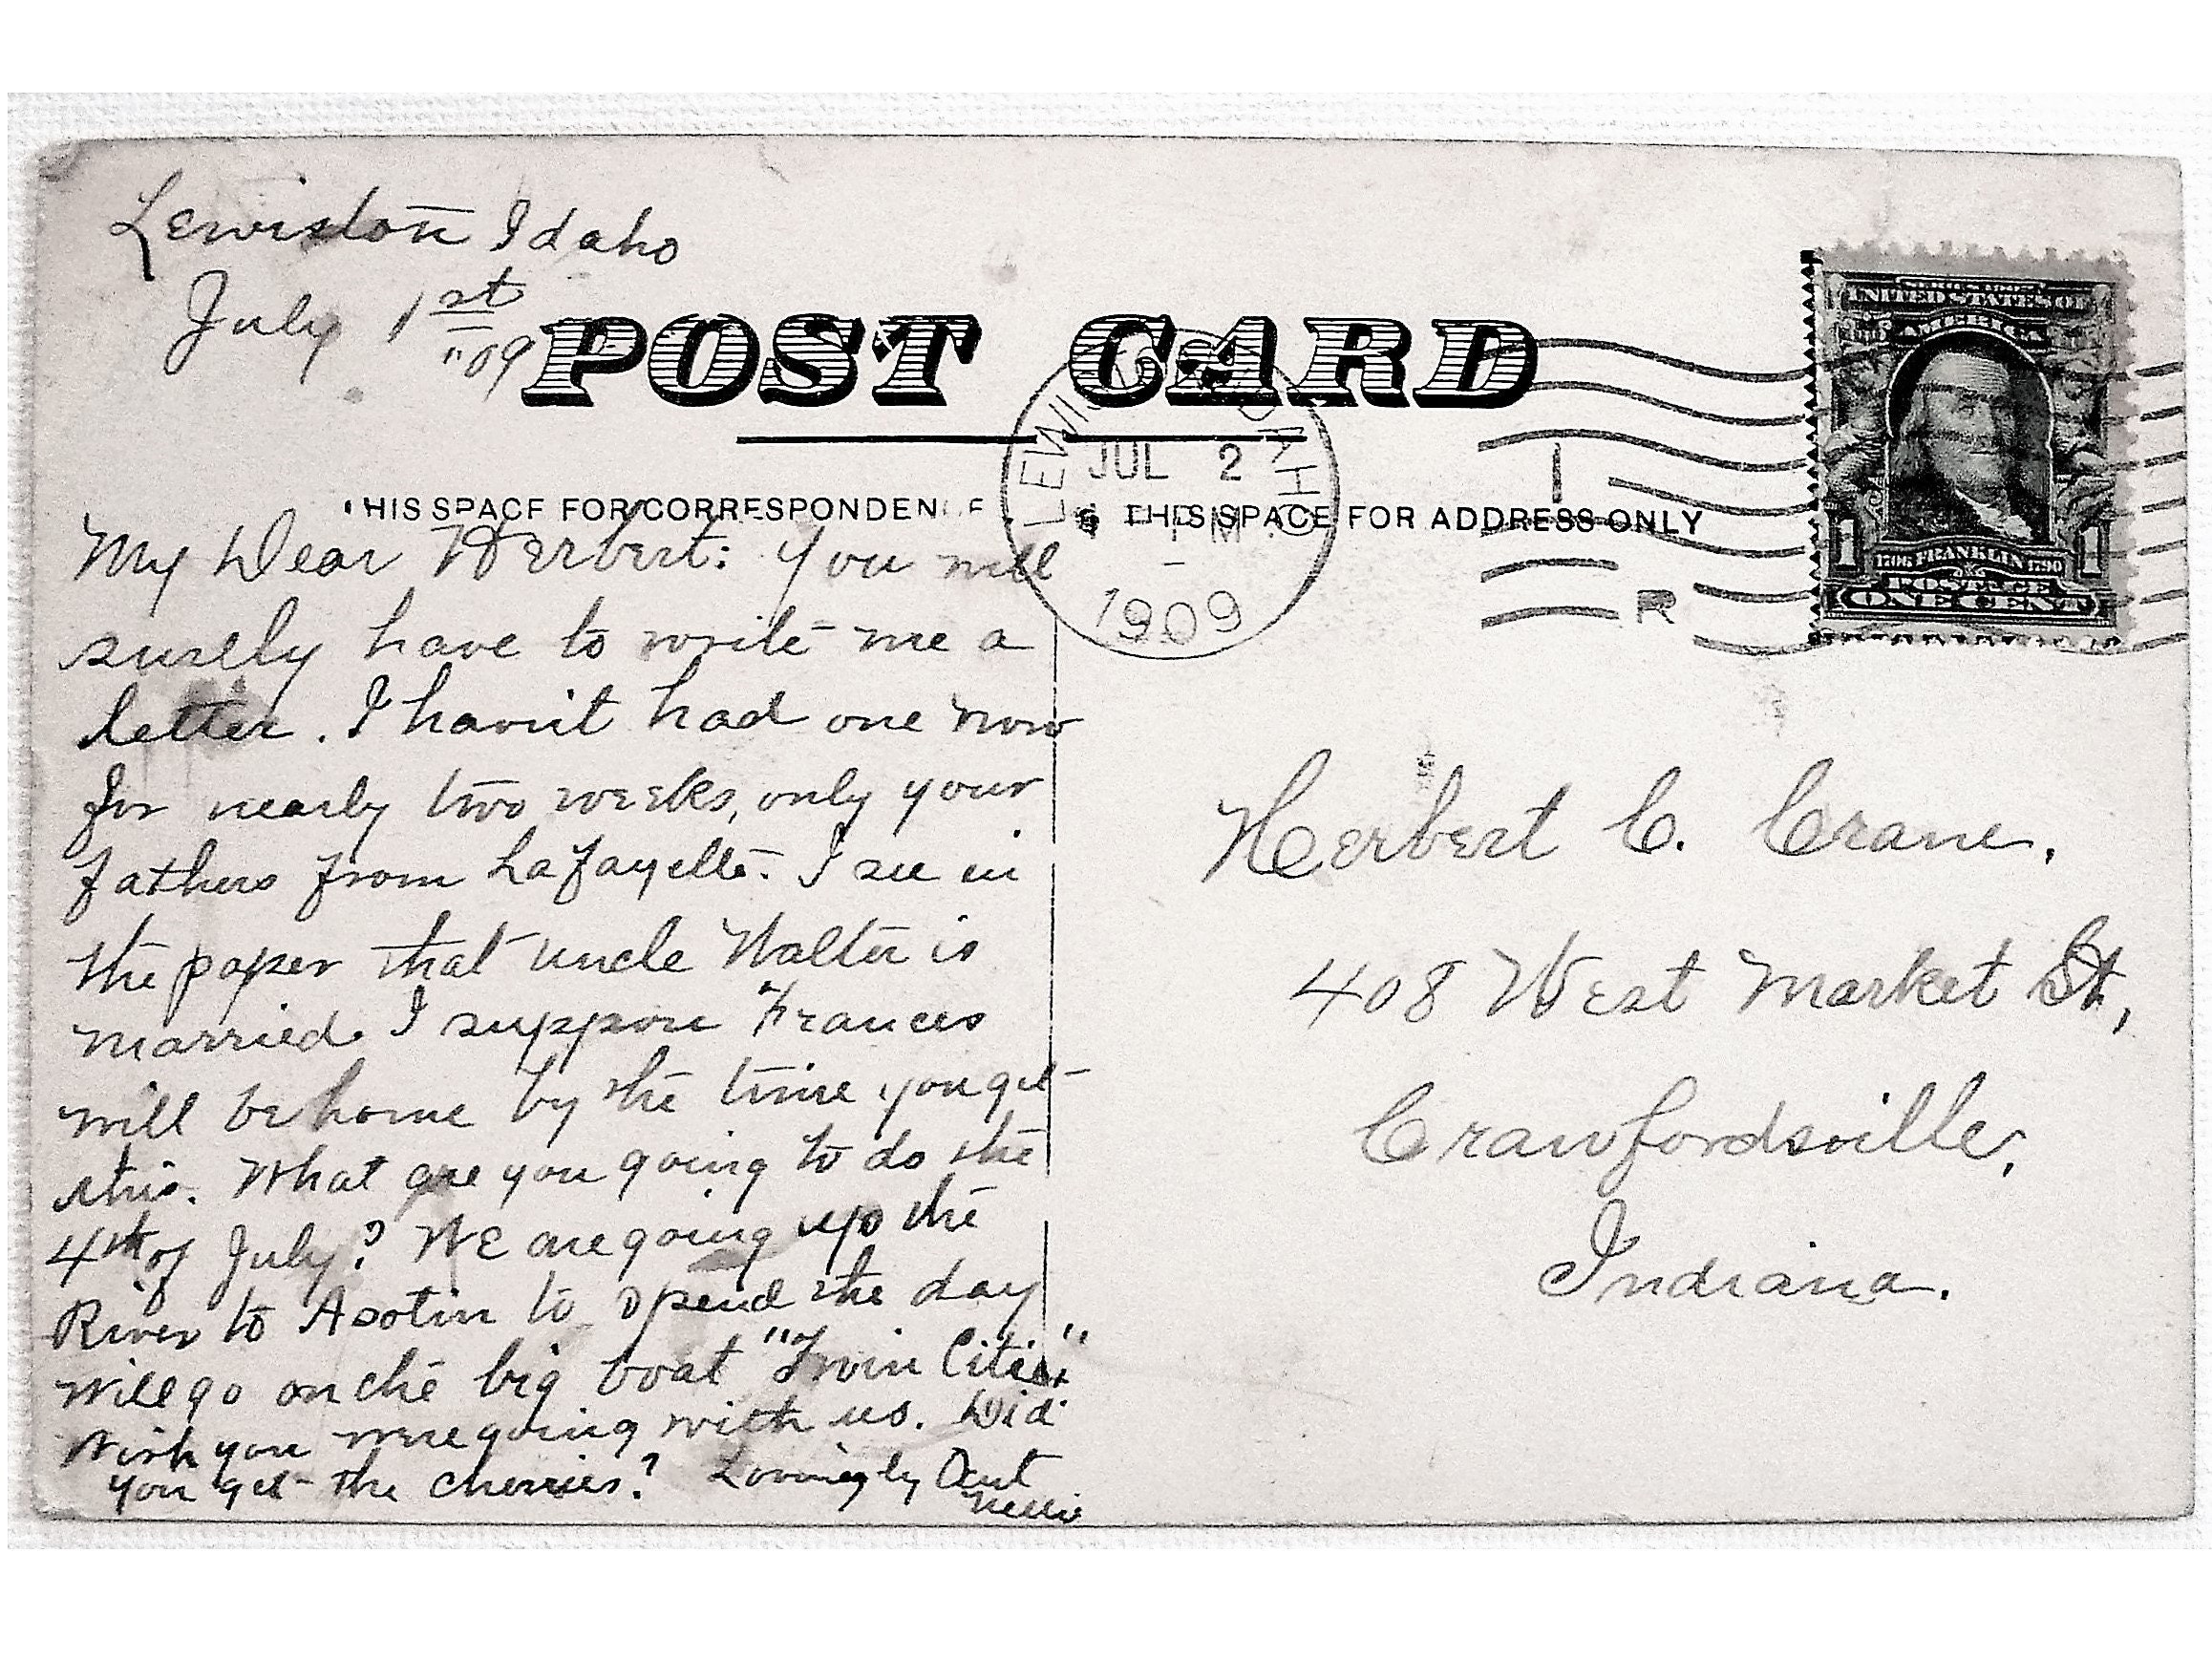 Lewiston Idaho
July 1st
"09
POST CARD
THIS SPACE FOR CORRESPONDENCE
THIS SPACE FOR ADDRESS ONLY
LEWISTON IDAHO
JUL 2
PM
1909
1
R
UNITED STATES OF
AMERICA
1 1706 FRANKLIN 1790 1
POSTAGE
ONE CENT
My Dear Herbert: You will
surely have to write me a
letter. I havn't had one now
for nearly two weeks, only your
fathers from Lafayette. I see in
the paper that uncle Walter is
married. I suppose Frances
will be home by the time you get
this. What are you going to do the
4th of July? We are going up the
River to Asotin to spend the day
will go on the big boat "Twin Cities"
Wish you were going with us. Did
you get the cherries? Lovingly Aunt
Nelli
Herbert C. Crane,
408 West Market St,
Crawfordsville,
Indiana.